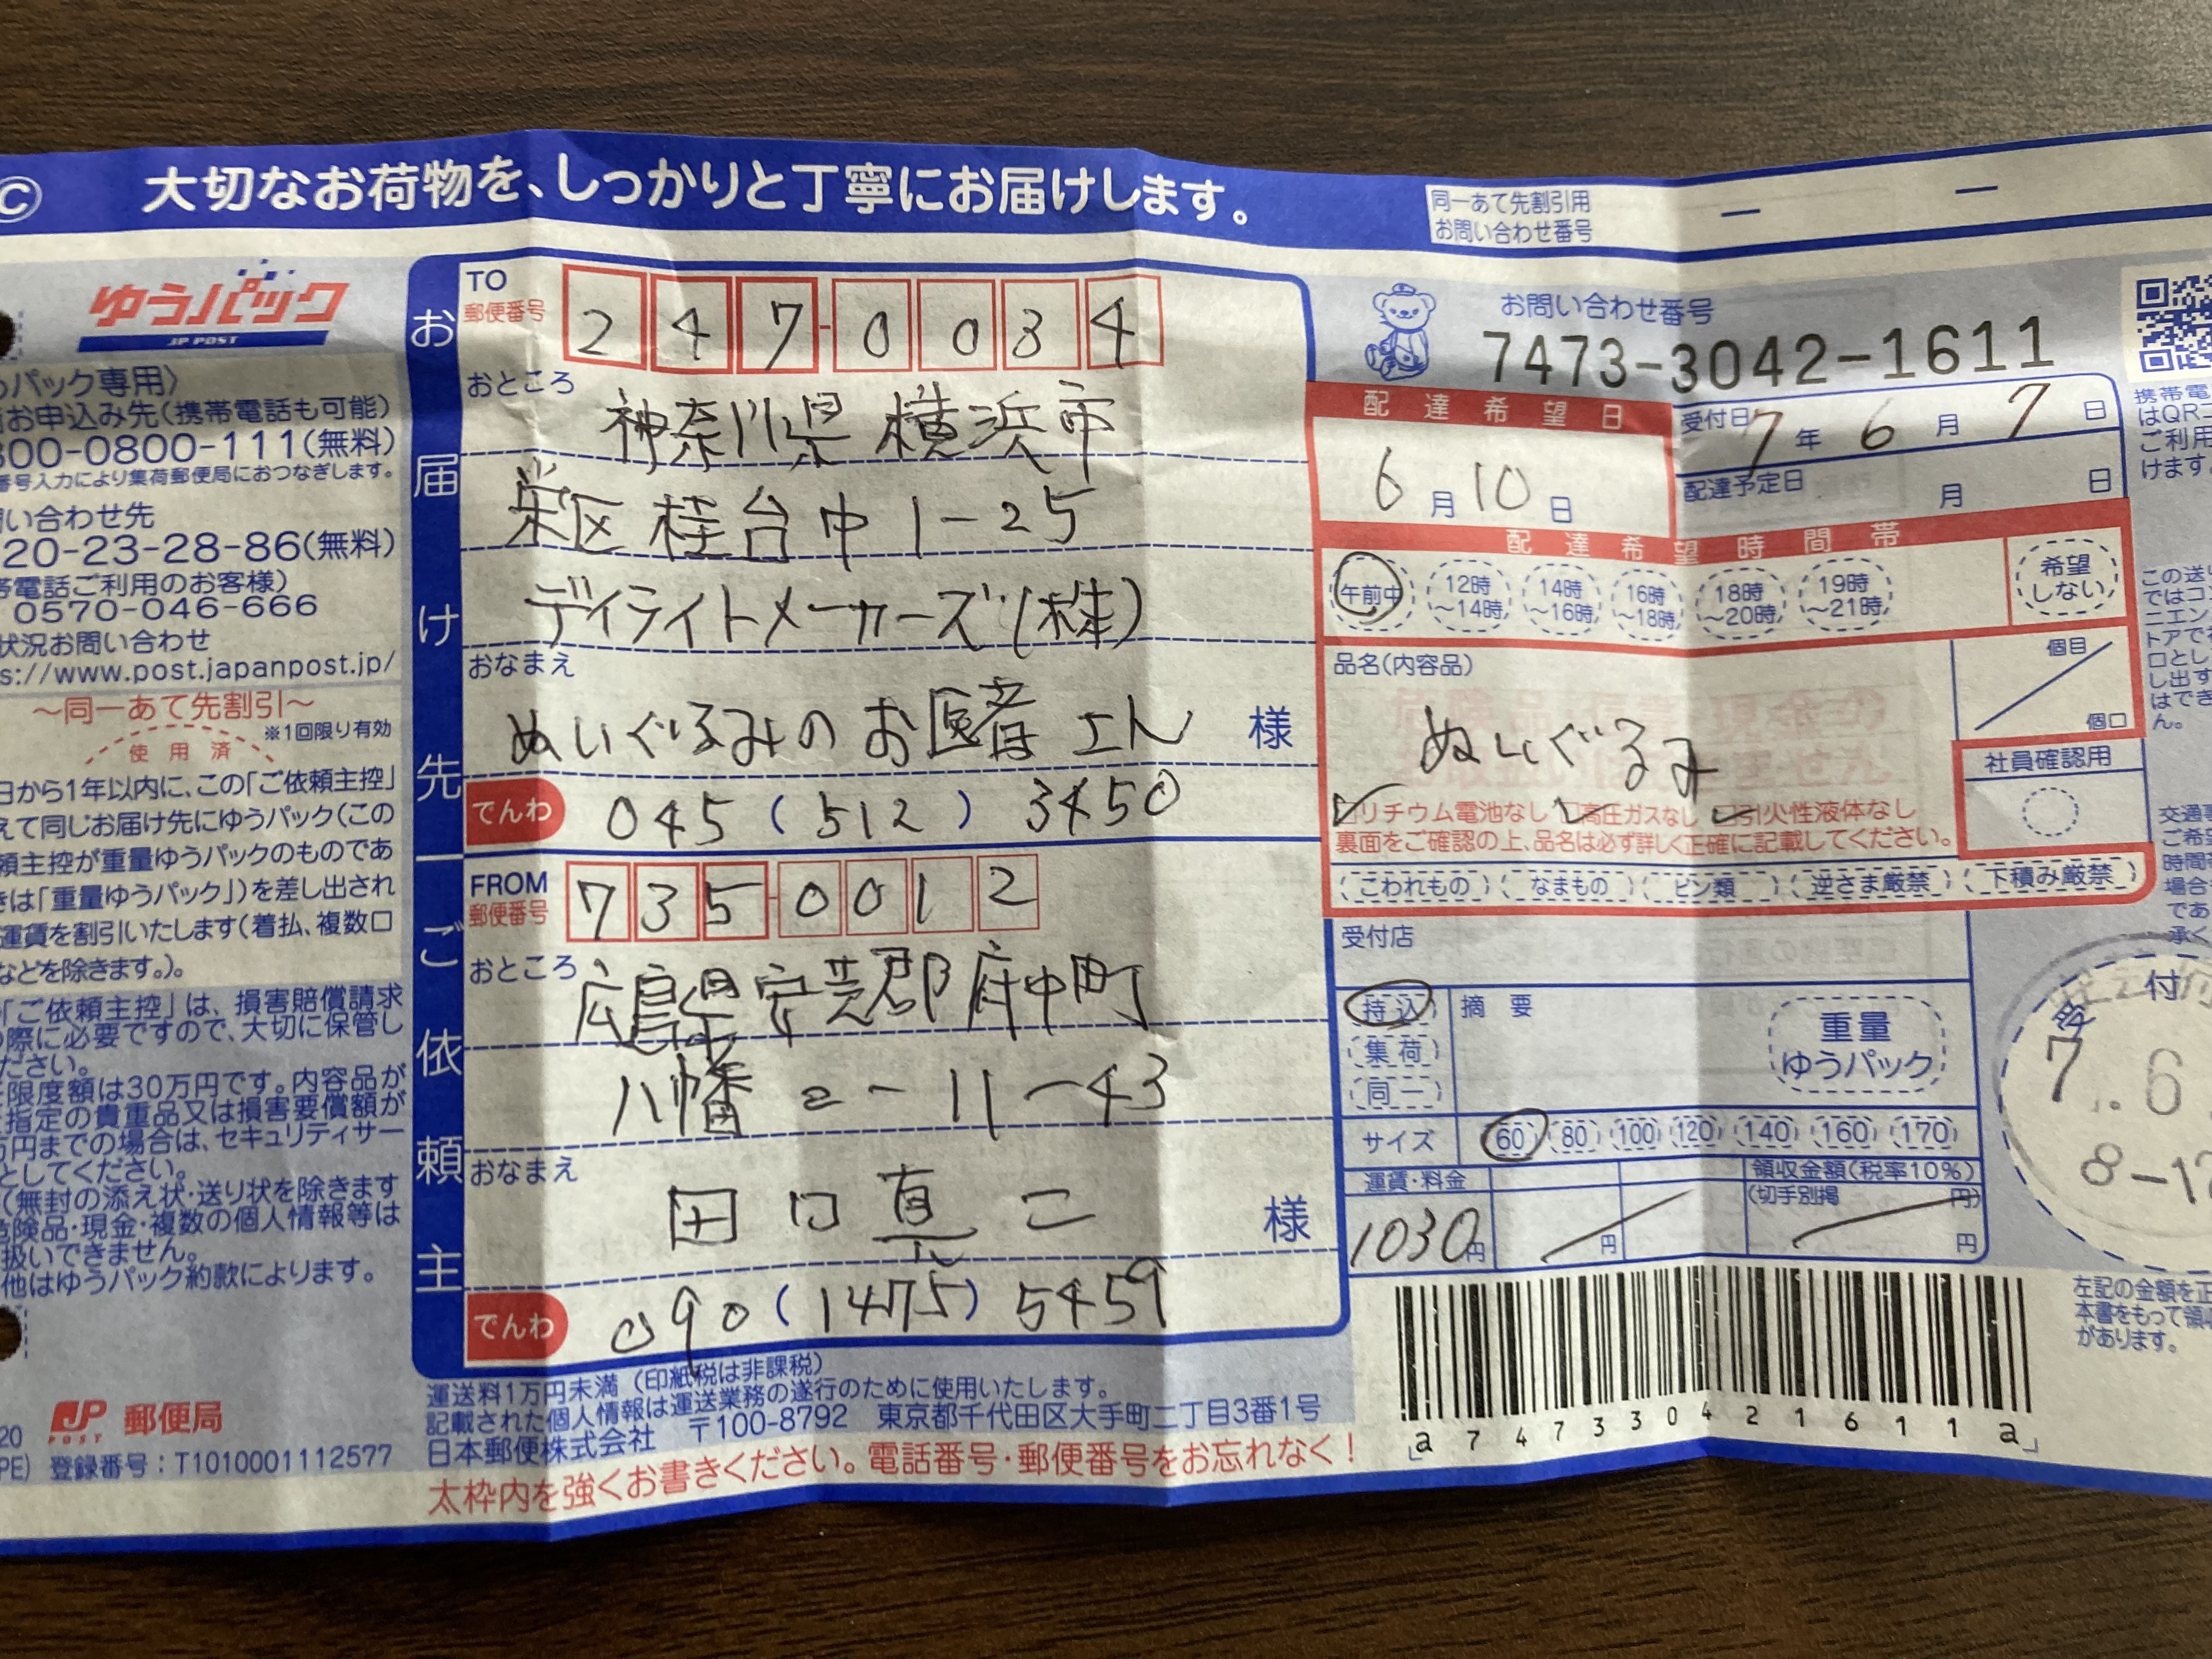 大切なお荷物を、しっかりと丁寧にお届けします。
同一あて先割引用
お問い合わせ番号
ゆうパック
JP POST
パック専用〉
お申込み先(携帯電話も可能)
800-0800-111(無料)
番号入力により集荷郵便局におつなぎします。
い合わせ先
20-23-28-86(無料)
帯電話ご利用のお客様)
0570-046-666
状況お問い合わせ
s://www.post.japanpost.jp/
〜同一あて先割引〜
※1回限り有効
使用済
日から1年以内に、この「ご依頼主控」
えて同じお届け先にゆうパック(この
頼主控が重量ゆうパックのものであ
きは「重量ゆうパック」)を差し出され
運賃を割引いたします(着払、複数口
などを除きます。)。
「ご依頼主控」は、損害賠償請求
の際に必要ですので、大切に保管し
ください。
限度額は30万円です。内容品が
指定の貴重品又は損害要償額が
万円までの場合は、セキュリティサー
としてください。
(無封の添え状・送り状を除きます
危険品・現金・複数の個人情報等は
扱いできません。
他はゆうパック約款によります。
JP POST 郵便局
登録番号:T1010001112577
お届け先
TO
郵便番号
247-0034
おところ
神奈川県 横浜市
栄区 桂台中1-25
デイライトメーカーズ(株)
おなまえ
ぬいぐるみのお医者さん 様
でんわ
045(512)3450
ご依頼主
FROM
郵便番号
735-0012
おところ
広島県安芸郡府中町
八幡2-11-43
おなまえ
田口真二 様
でんわ
090(1475)5459
運送料1万円未満(印紙税は非課税)
記載された個人情報は運送業務の遂行のために使用いたします。
日本郵便株式会社 〒100-8792 東京都千代田区大手町二丁目3番1号
太枠内を強くお書きください。電話番号・郵便番号をお忘れなく!
お問い合わせ番号
7473-3042-1611
配達希望日
6月10日
受付日 7年6月7日
配達予定日 月 日
配達希望時間帯
午前中
12時〜14時
14時〜16時
16時〜18時
18時〜20時
19時〜21時
希望しない
品名(内容品)
ぬいぐるみ
個目
個口
社員確認用
リチウム電池なし 高圧ガスなし 引火性液体なし
裏面をご確認の上、品名は必ず詳しく正確に記載してください。
こわれもの なまもの ビン類 逆さま厳禁 下積み厳禁
受付店
持込
集荷
同一
摘要
重量
ゆうパック
サイズ 60 80 100 120 140 160 170
運賃・料金
1030円
円
領収金額(税率10%)
(切手別掲 円)
円
受付
7. 6
8-12
a747330421611a
携帯電
はQRコ
ご利用
けます。
左記の金額を正
本書をもって領収
があります。